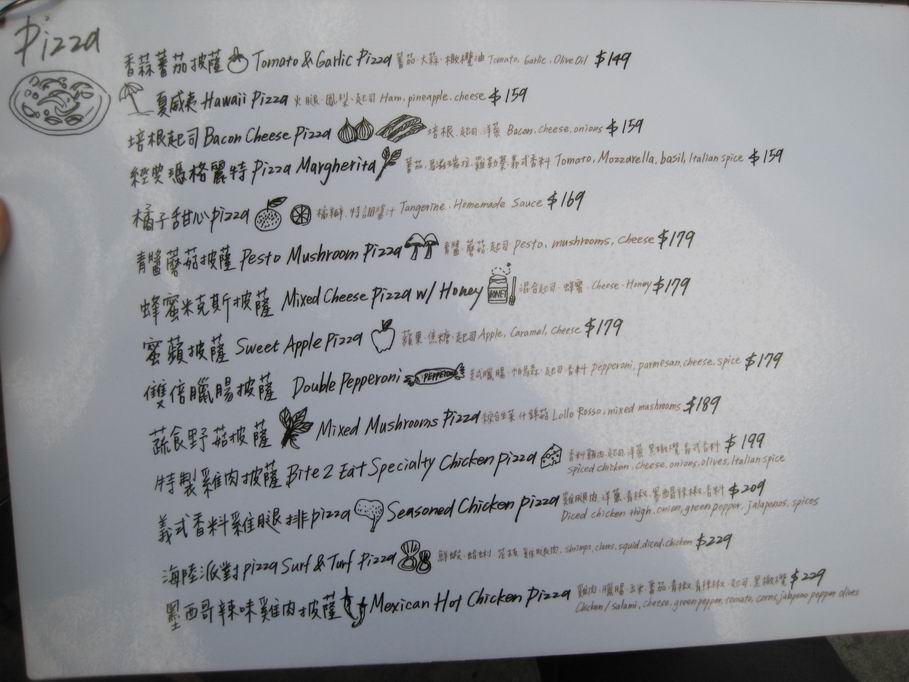 Pizza
香蒜蕃茄披薩 Tomato & Garlic Pizza 蕃茄、大蒜、橄欖油 Tomato, Garlic, Olive Oil $149
夏威夷 Hawaii Pizza 火腿、鳳梨、起司 Ham, pineapple, cheese $159
培根起司 Bacon Cheese Pizza 培根、起司、洋蔥 Bacon, cheese, onions $159
經典瑪格麗特 Pizza Margherita 蕃茄、馬滋瑞拉、羅勒葉、義式香料 Tomato, Mozzarella, basil, Italian spice $159
橘子甜心pizza 橘瓣、特調醬汁 Tangerine, Homemade Sauce $169
青醬蘑菇披薩 Pesto Mushroom Pizza 青醬、蘑菇、起司 pesto, mushrooms, cheese $179
蜂蜜米克斯披薩 Mixed Cheese Pizza w/ Honey HONEY 混合起司、蜂蜜 Cheese, Honey $179
蜜蘋披薩 Sweet Apple Pizza 蘋果、焦糖、起司 Apple, Caramel, Cheese $179
雙倍臘腸披薩 Double Pepperoni PEPPERONI 美式臘腸、帕馬森、起司、香料 pepperoni, parmesan, cheese, spice $179
蔬食野菇披薩 Mixed Mushrooms Pizza 綜合生菜、什錦菇 Lollo Rosso, mixed mushrooms $189
特製雞肉披薩 Bite 2 Eat Specialty Chicken pizza 香料雞肉、起司、洋蔥、黑橄欖、義式香料 $199
spiced chicken, cheese, onions, olives, Italian spice
義式香料雞腿排pizza Seasoned Chicken pizza 雞腿肉、洋蔥、青椒、墨西哥辣椒、香料 $209
Diced chicken thigh, onion, green pepper, jalapenos, spices
海陸派對pizza Surf & Turf Pizza 鮮蝦、蛤蜊、花枝、雞腿肉 shrimps, clams, squid, diced chicken $229
墨西哥辣味雞肉披薩 Mexican Hot Chicken Pizza 雞肉、臘腸、玉米、蕃茄、青椒、青辣椒、起司、黑橄欖 $229
Chicken / salami, cheese, green pepper, tomato, corns, jalapeno pepper olives